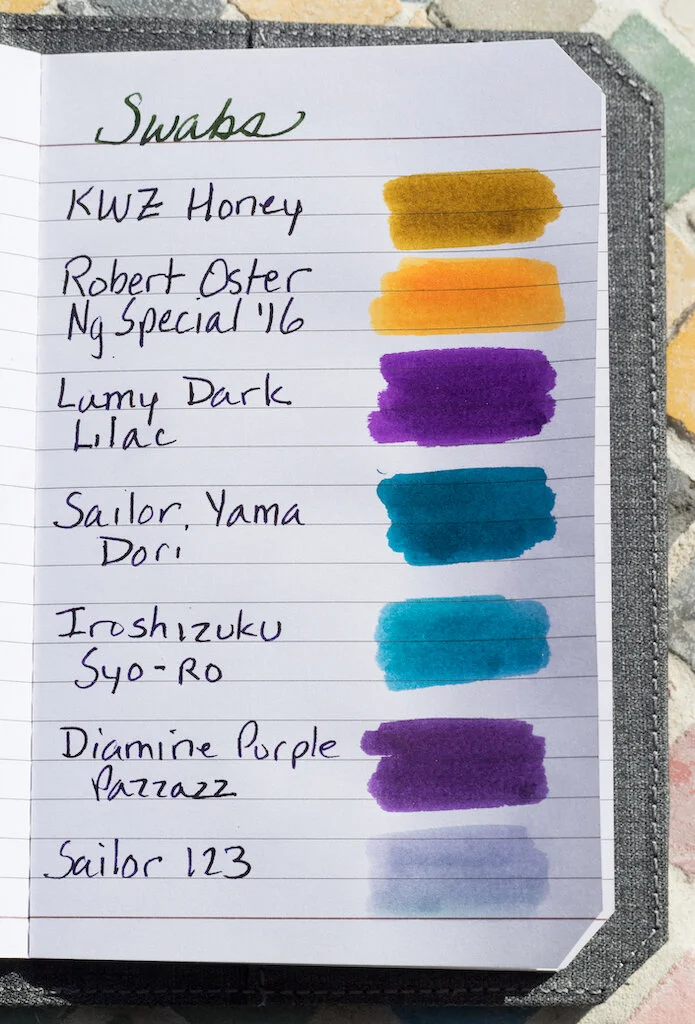 Swabs
KWZ Honey
Robert Oster
Ng Special '16
Lamy Dark
Lilac
Sailor, Yama
Dori
Iroshizuku
Syo-Ro
Diamine Purple
Pazzazz
Sailor 123